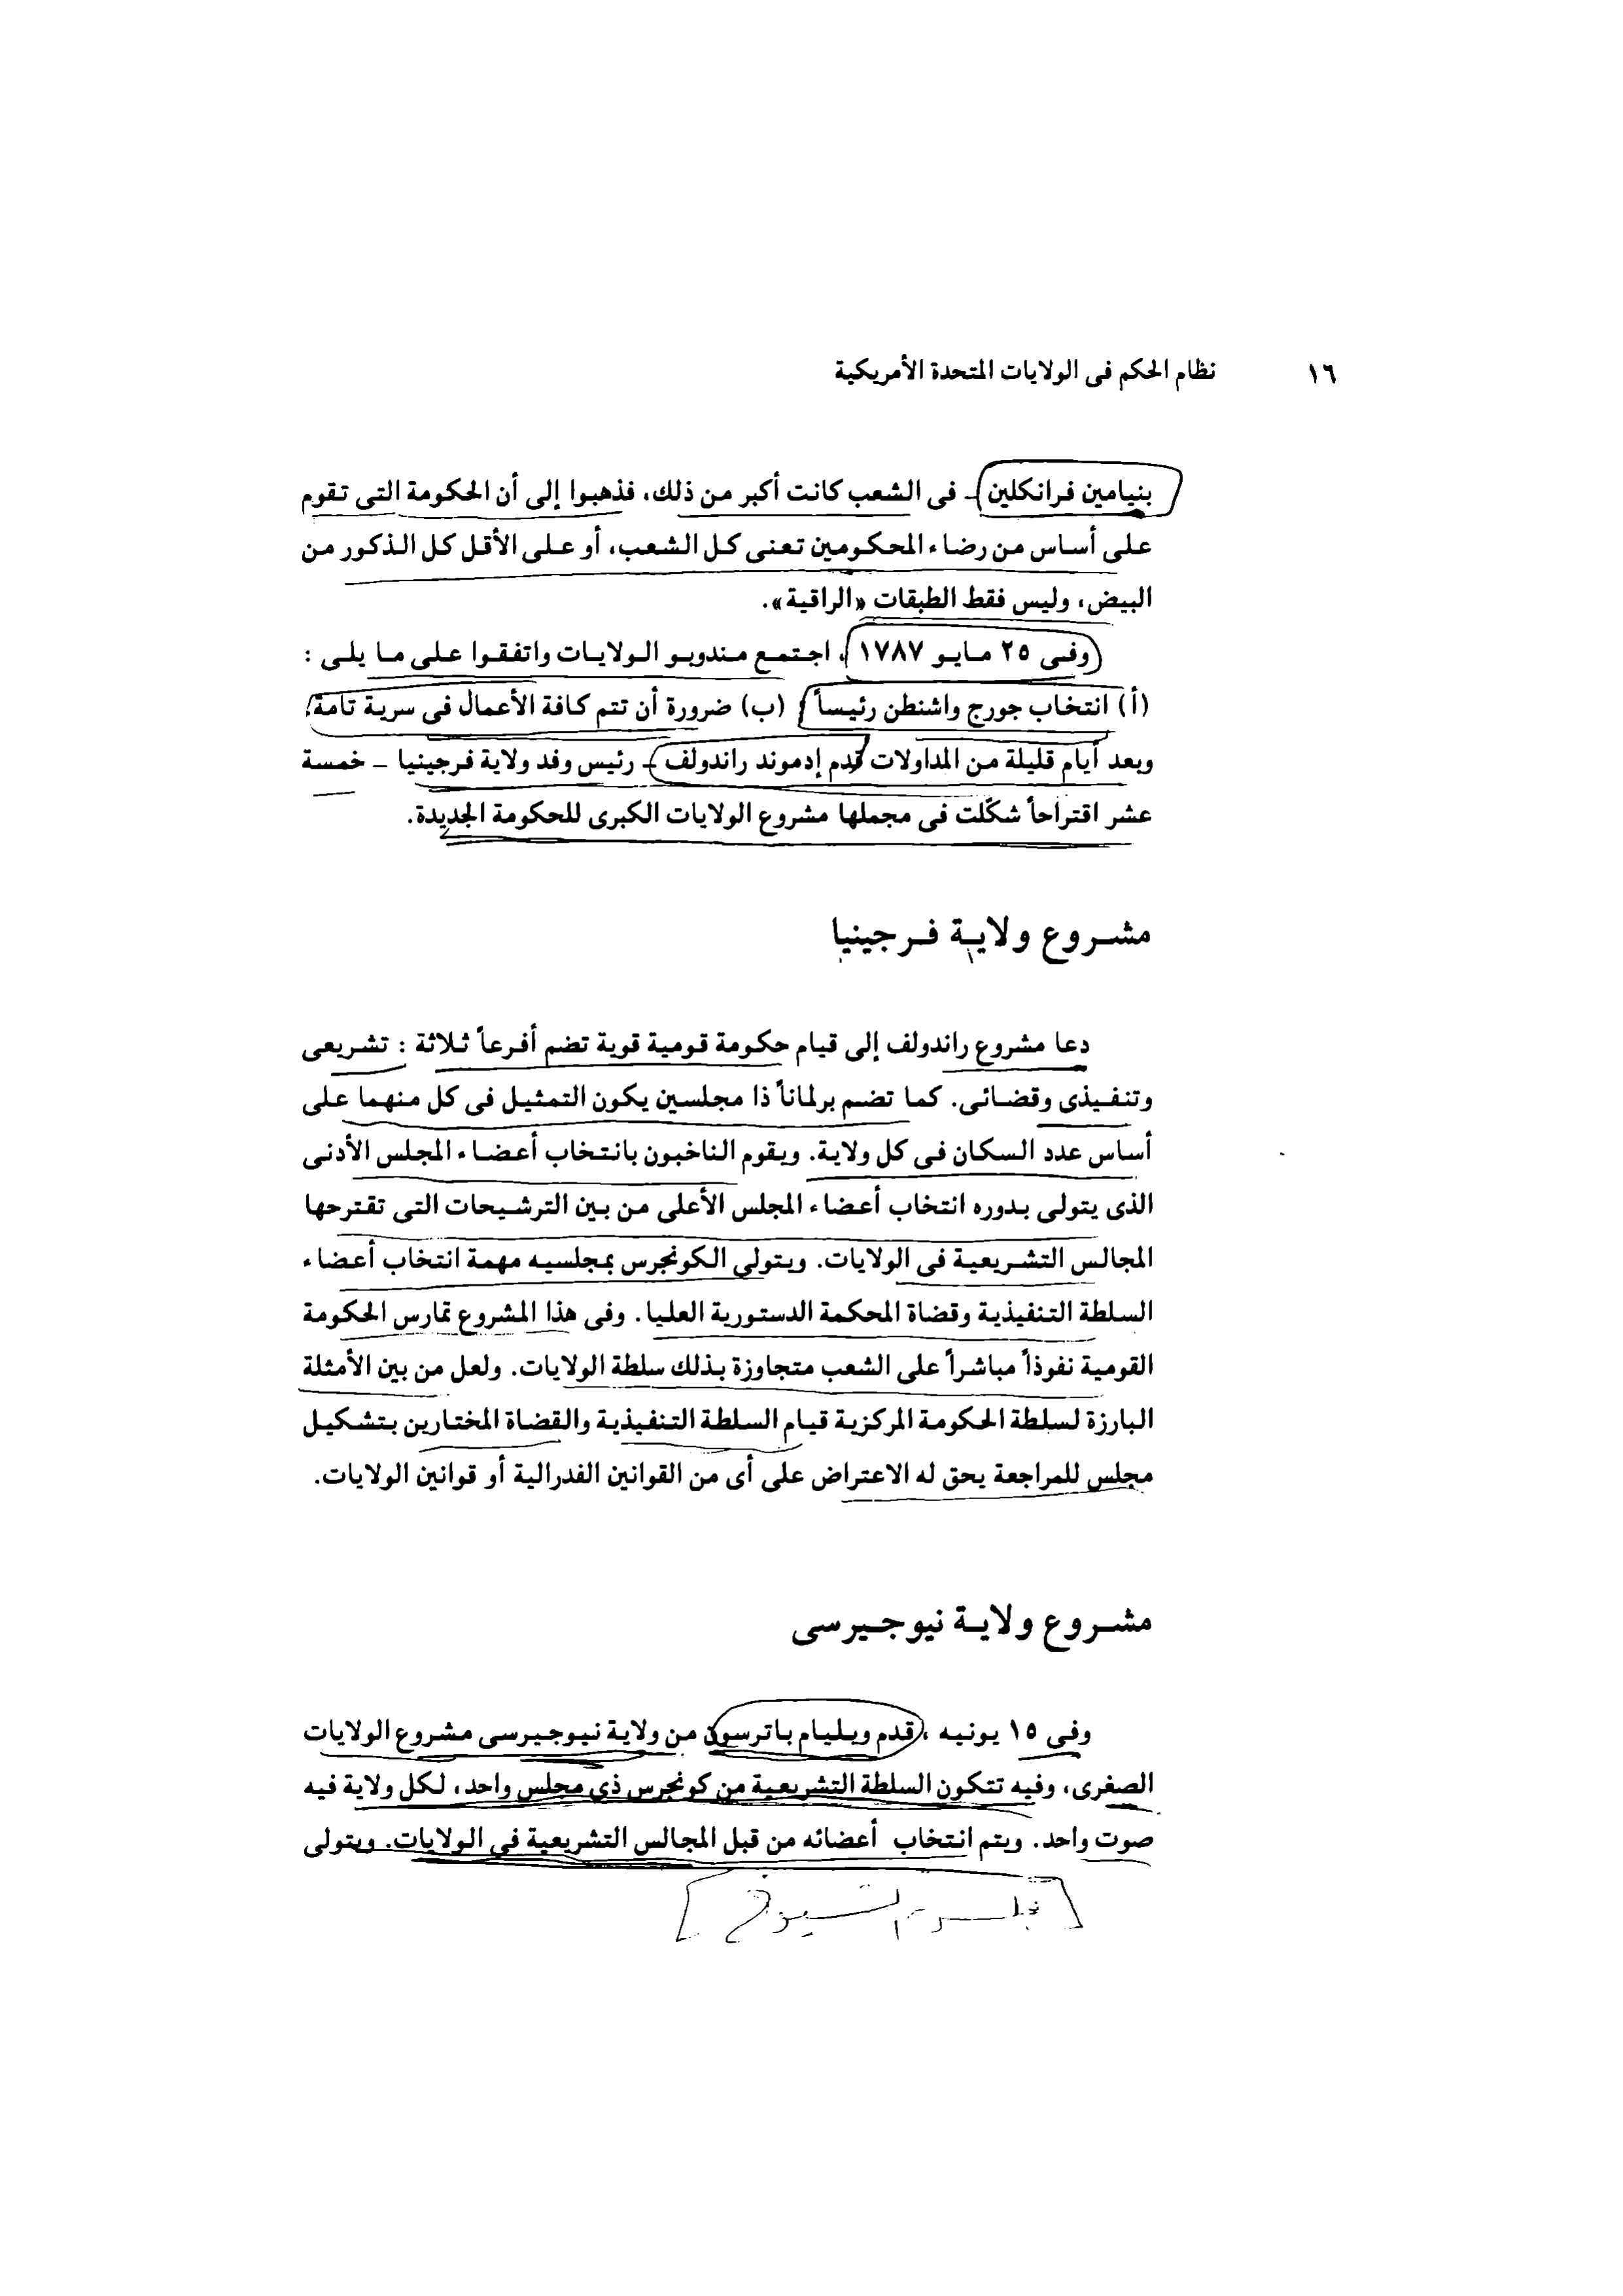 ١٦ نظام الحكم فى الولايات المتحدة الأمريكية
بنيامين فرانكلين ـ فى الشعب كانت أكبر من ذلك، فذهبوا إلى أن الحكومة التى تقوم
على أساس من رضاء المحكومين تعنى كل الشعب، أو على الأقل كل الذكور من
البيض، وليس فقط الطبقات «الراقية».
وفى ٢٥ مايو ١٧٨٧، اجتمع مندوبو الولايات واتفقوا على ما يلى :
(أ) انتخاب جورج واشنطن رئيساً، (ب) ضرورة أن تتم كافة الأعمال فى سرية تامة.
وبعد أيام قليلة من المداولات قدم إدموند راندولف ـ رئيس وفد ولاية فرجينيا ـ خمسة
عشر اقتراحاً شكّلت فى مجملها مشروع الولايات الكبرى للحكومة الجديدة.
مشروع ولاية فرجينيا
دعا مشروع راندولف إلى قيام حكومة قومية قوية تضم أفرعاً ثلاثة : تشريعى
وتنفيذى وقضائى. كما تضم برلماناً ذا مجلسين يكون التمثيل فى كل منهما على
أساس عدد السكان فى كل ولاية. ويقوم الناخبون بانتخاب أعضاء المجلس الأدنى
الذى يتولى بدوره انتخاب أعضاء المجلس الأعلى من بين الترشيحات التى تقترحها
المجالس التشريعية فى الولايات. ويتولى الكونجرس بمجلسيه مهمة انتخاب أعضاء
السلطة التنفيذية وقضاة المحكمة الدستورية العليا. وفى هذا المشروع تمارس الحكومة
القومية نفوذاً مباشراً على الشعب متجاوزة بذلك سلطة الولايات. ولعل من بين الأمثلة
البارزة لسلطة الحكومة المركزية قيام السلطة التنفيذية والقضاة المختارين بتشكيل
مجلس للمراجعة يحق له الاعتراض على أى من القوانين الفدرالية أو قوانين الولايات.
مشروع ولاية نيوجيرسى
وفى ١٥ يونيه، قدم ويليام باترسون من ولاية نيوجيرسى مشروع الولايات
الصغرى، وفيه تتكون السلطة التشريعية من كونجرس ذى مجلس واحد، لكل ولاية فيه
صوت واحد. ويتم انتخاب أعضائه من قبل المجالس التشريعية فى الولايات. ويتولى
مجلس الشيوخ